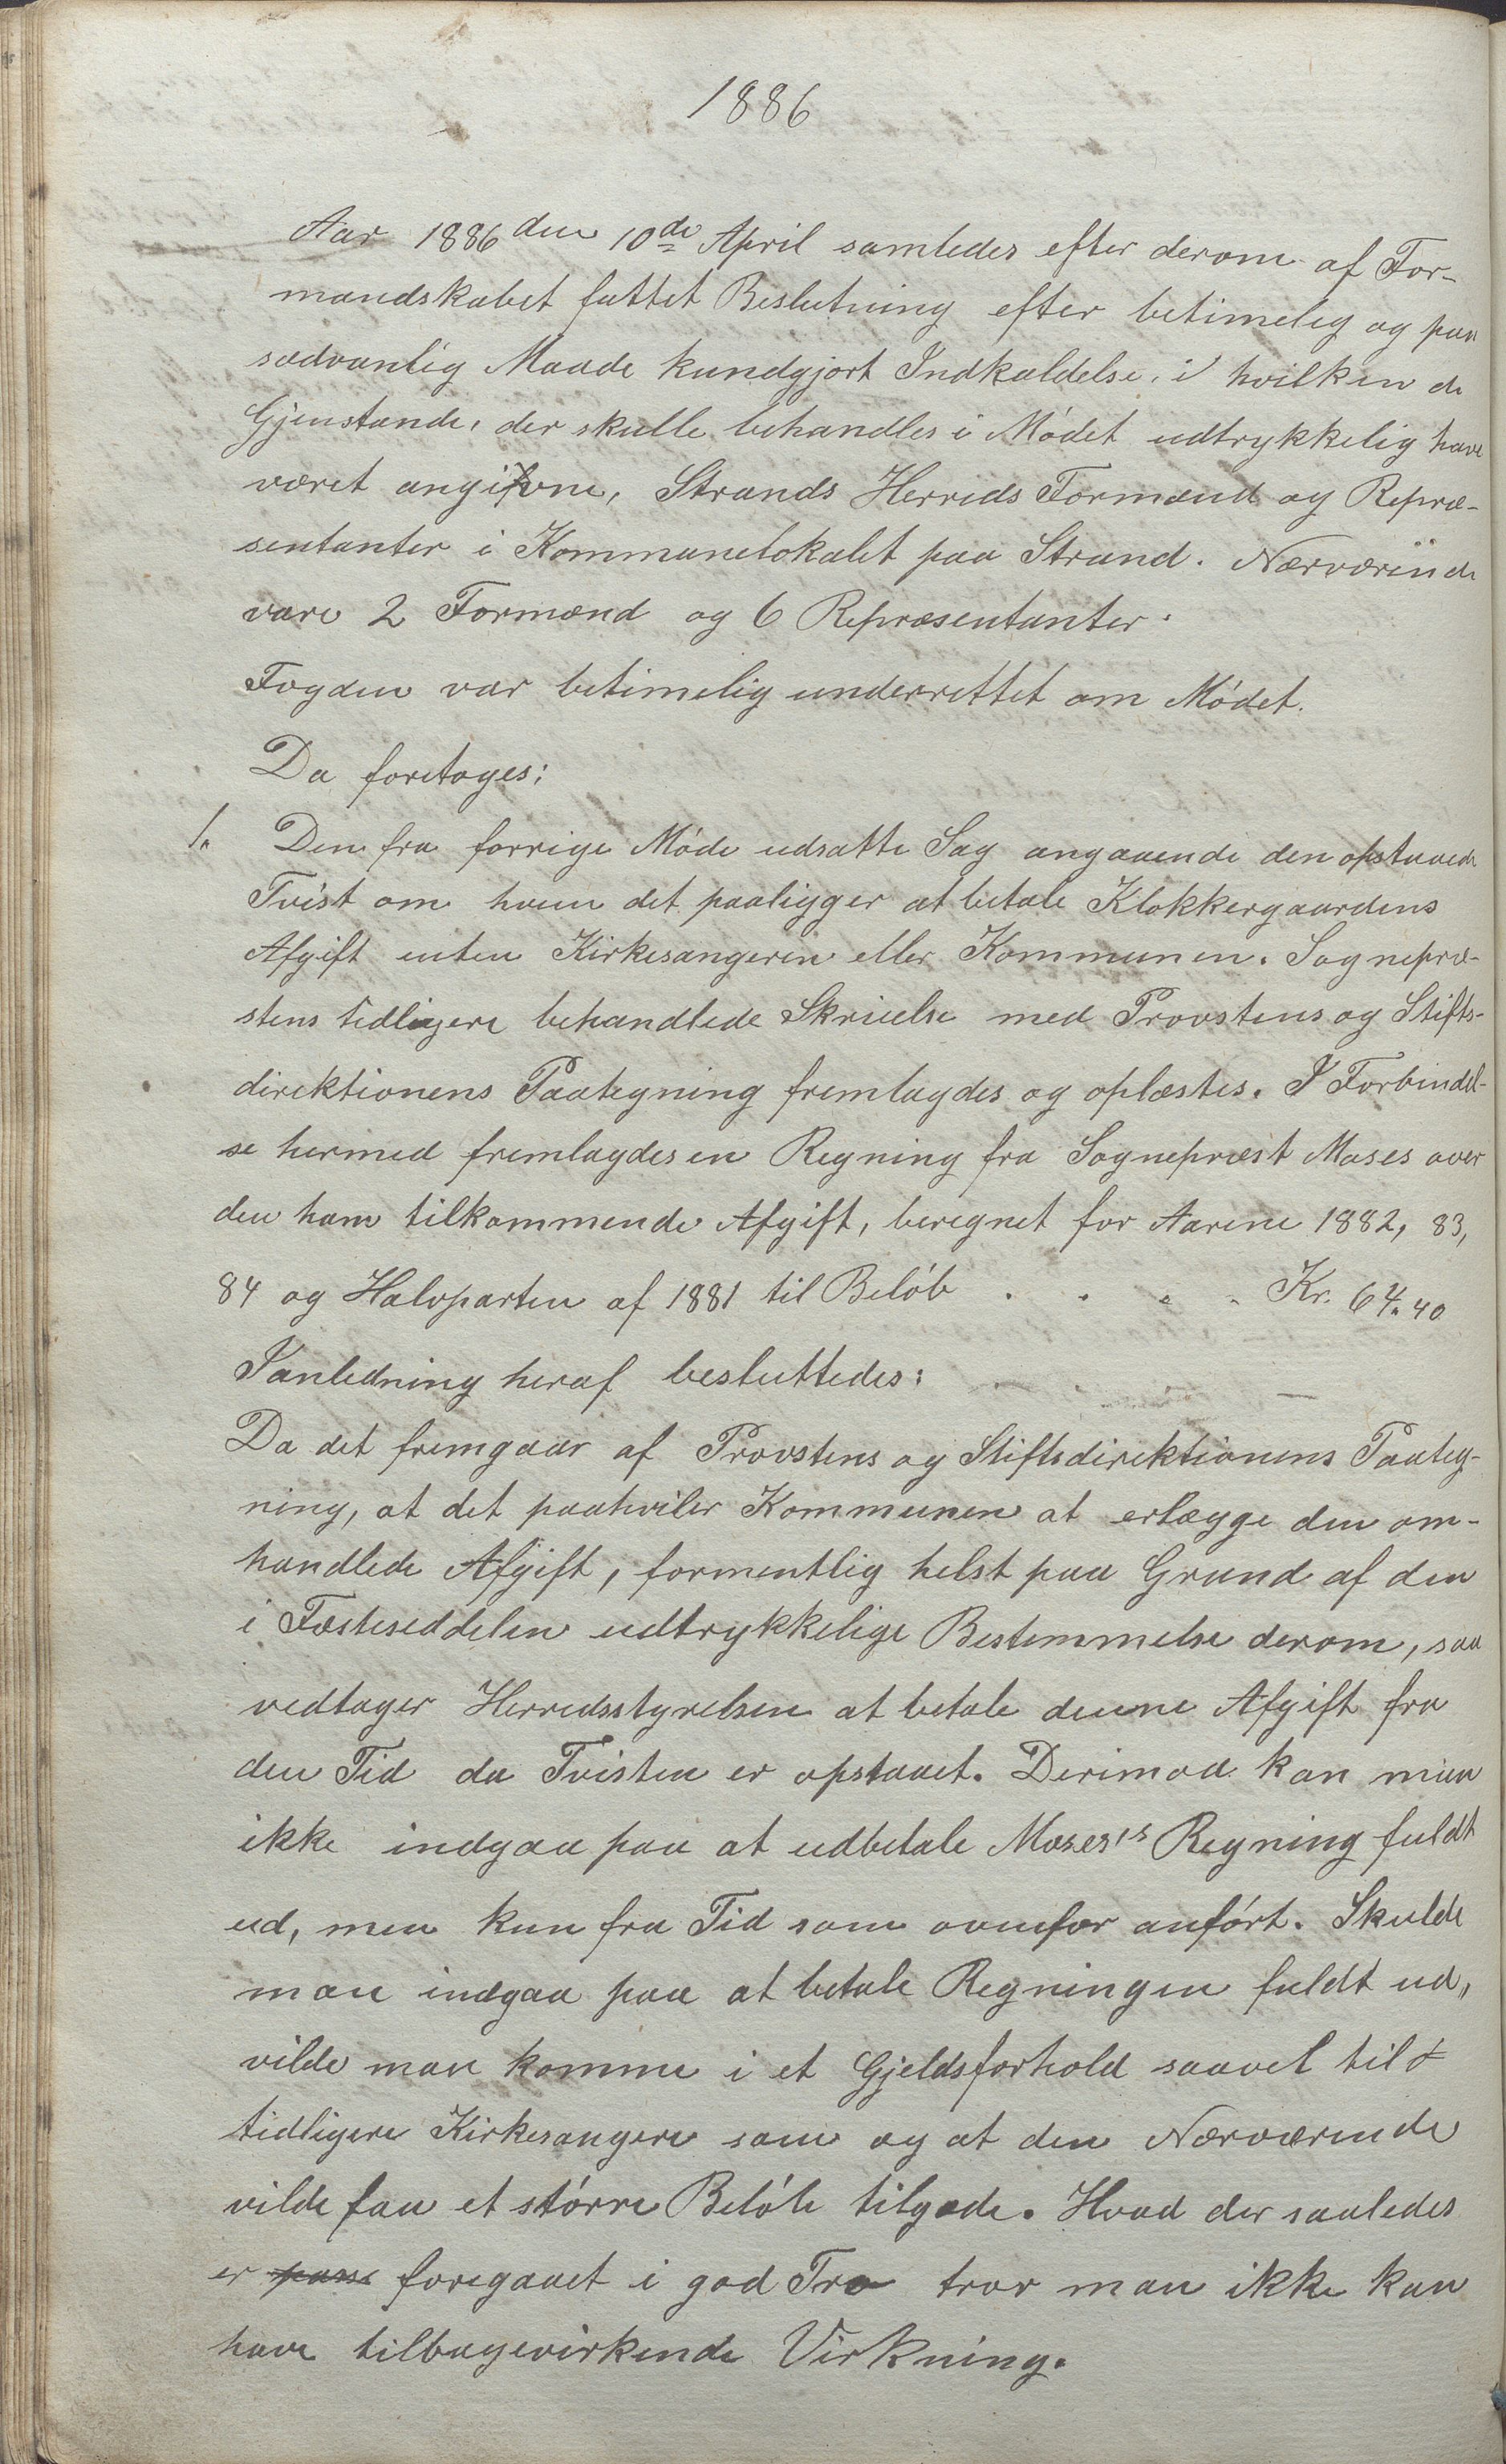 1886
Aar 1886 den 10de April samledes efter derom af For-
mandskabet fattet Beslutning efter betimelig og paa
sædvanlig Maade kundgjort Indkaldelse, i hvilken de
Gjenstande, der skulle behandles i Mødet udtrykkelig have
været angivne, Strands Herreds Formænd og Repræ-
sentanter i Kommunelokalet paa Strand. Nærværende
vare 2 Formænd og 6 Repræsentanter.
Fogden var betimelig underrettet om Mødet.
Da foretoges:
1. Den fra forrige Møde udsatte Sag angaaende den opstaaede
Tvist om hvem det paaligger at betale Klokkergaardens
Afgift enten Kirkesangeren eller Kommunen. Sognepræ-
stens tidligere behandlede Skrivelse med Provstens og Stifts-
direktionens Paategning fremlagdes og oplæstes. I Forbindel-
se hermed fremlagdes en Regning fra Sognepræst Moses over
den ham tilkommende Afgift, beregnet for Aarene 1882, 83,
84 og Halvparten af 1881 til Beløb . . . . Kr. 64.40
Ianledning heraf besluttedes:
Da det fremgaar af Provstens og Stiftsdirektionens Paateg-
ning, at det paahviler Kommunen at erlægge den om-
handlede Afgift, formentlig helst paa Grund af den
i Fæsteseddelen udtrykkelige Bestemmelse derom, saa
vedtager Herredsstyrelsen at betale denne Afgift fra
den Tid da Tvisten er opstaaet. Derimod kan man
ikke indgaa paa at udbetale Moses's Regning fuldt
ud, men kun fra Tid som ovenfor anført. Skulde
man indgaa paa at betale Regningen fuldt ud,
vilde man komme i et Gjeldsforhold saavel til
tidligere Kirkesangere som og at den Nærværende
vilde faa et større Beløb tilgode. Hvad der saaledes
er foregaaet i god Tro tror man ikke kan
have tilbagevirkende Virkning.